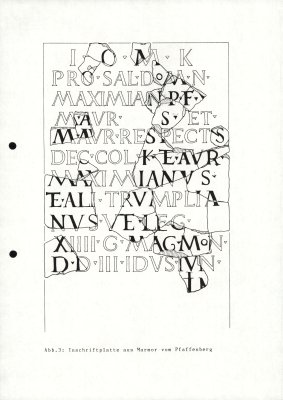 I · O · M · K
PRO · SAL · D · O · M · N ·
MAXIMIANI · P · F ·
MAVR · S · ET ·
MA · AVR · RESPECTVS
DEC · COL · K · ET · AVR
MAXIMIANVS ·
ET · ALI · TRVMPLI A
NVS · VET · LEG ·
XIIII · G · M · AG · MON ·
D · D · III · IDVS · IVN ·
Abb.3: Inschriftplatte aus Marmor vom Pfaffenberg